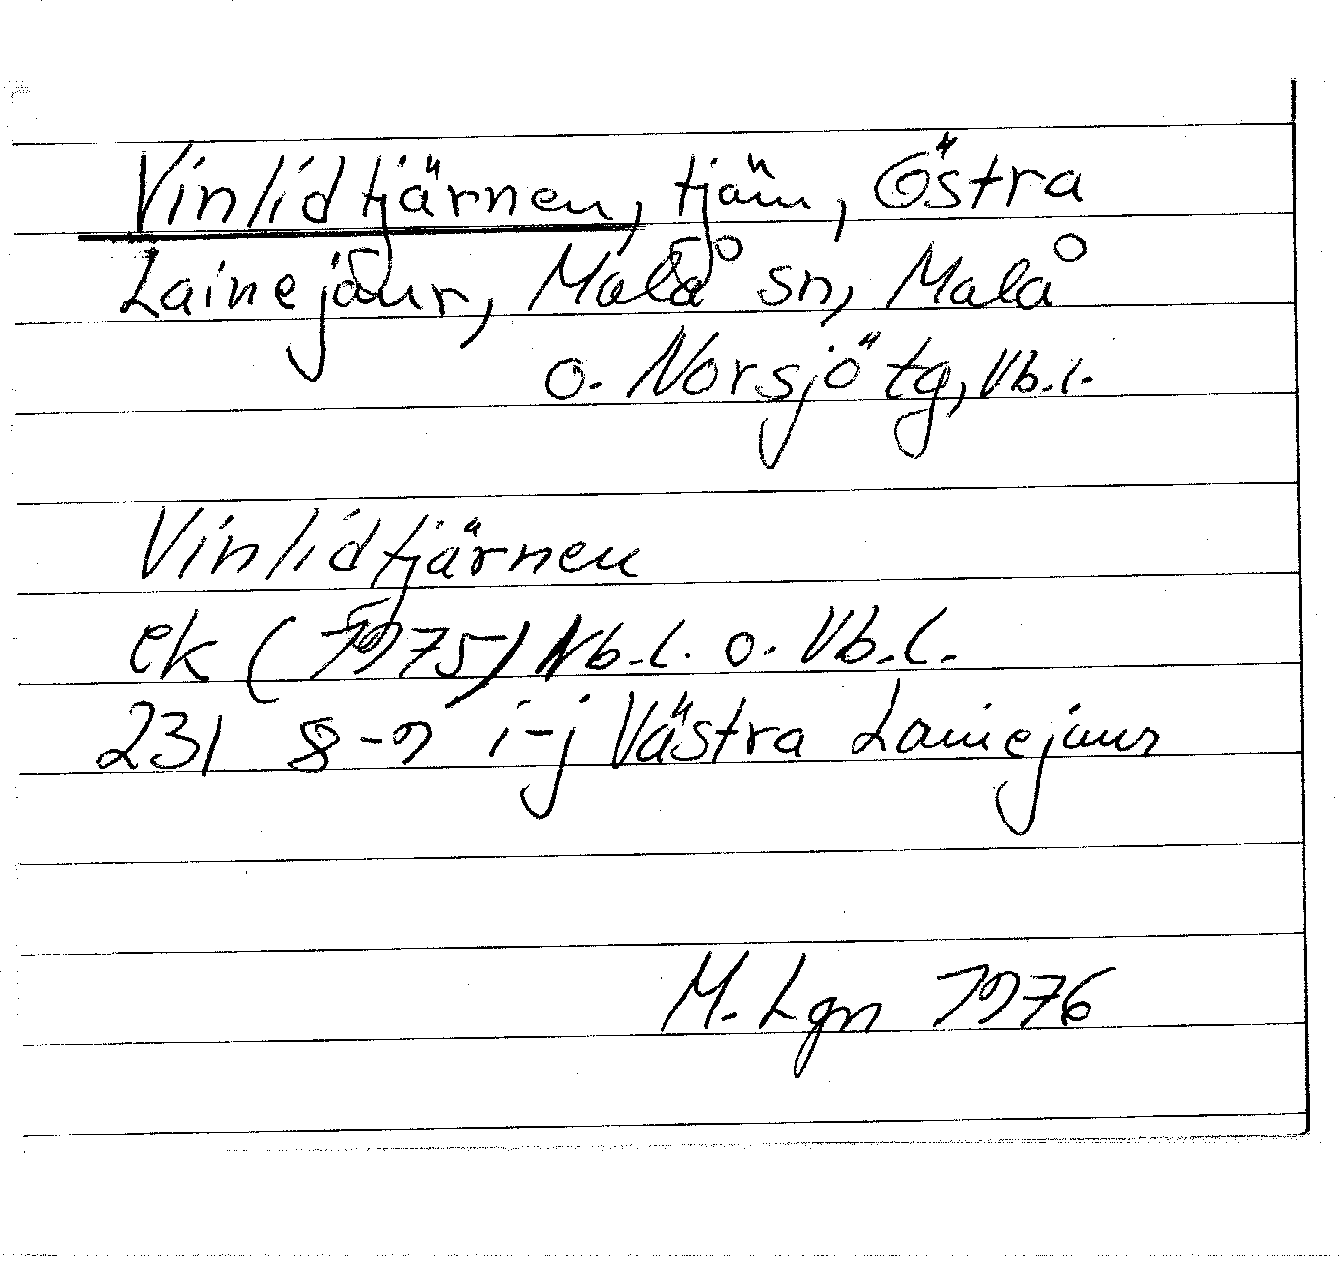 Vinlidtjärnen, tjärn, Östra
Lainejaur, Malå sn, Malå
o. Norsjö tg, Vb.l.
Vinlidtjärnen
ek (1975) Nb.l. o. Vb.l.
231 8-9 i-j Västra Lainejaur
M. Lgn 1976